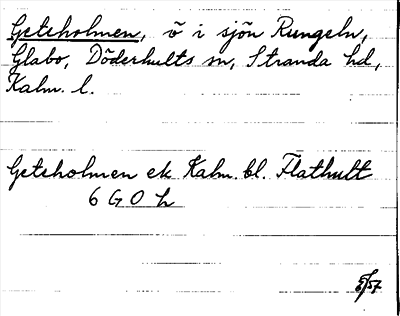 Geteholmen, ö i sjön Rungeln,
Glabo, Döderhults sn, Stranda hd,
Kalm. l.
Geteholmen ek Kalm. bl. Flathult
6 G 0 h